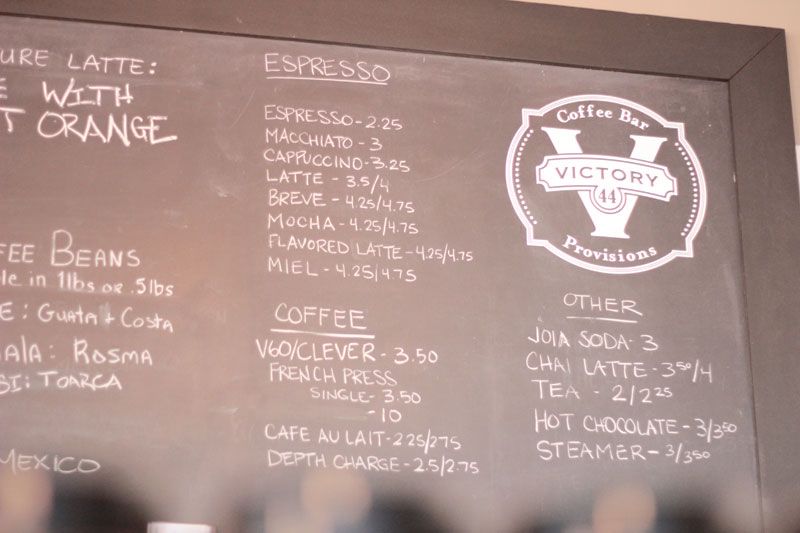 URE LATTE:
E WITH
T ORANGE
FEE BEANS
le in 1lbs or .5lbs
E: Guata + Costa
ALA: ROSMA
SI: TOARCA
MEXICO
ESPRESSO
ESPRESSO - 2.25
MACCHIATO - 3
CAPPUCCINO - 3.25
LATTE - 3.5/4
BREVE - 4.25/4.75
MOCHA - 4.25/4.75
FLAVORED LATTE - 4.25/4.75
MIEL - 4.25/4.75
COFFEE
V60/CLEVER - 3.50
FRENCH PRESS
SINGLE - 3.50
-10
CAFE AU LAIT - 225/275
DEPTH CHARGE - 2.5/2.75
Coffee Bar
V
VICTORY
44
Provisions
OTHER
JOIA SODA - 3
CHAI LATTE - 350/4
TEA - 2/225
HOT CHOCOLATE - 3/350
STEAMER - 3/350